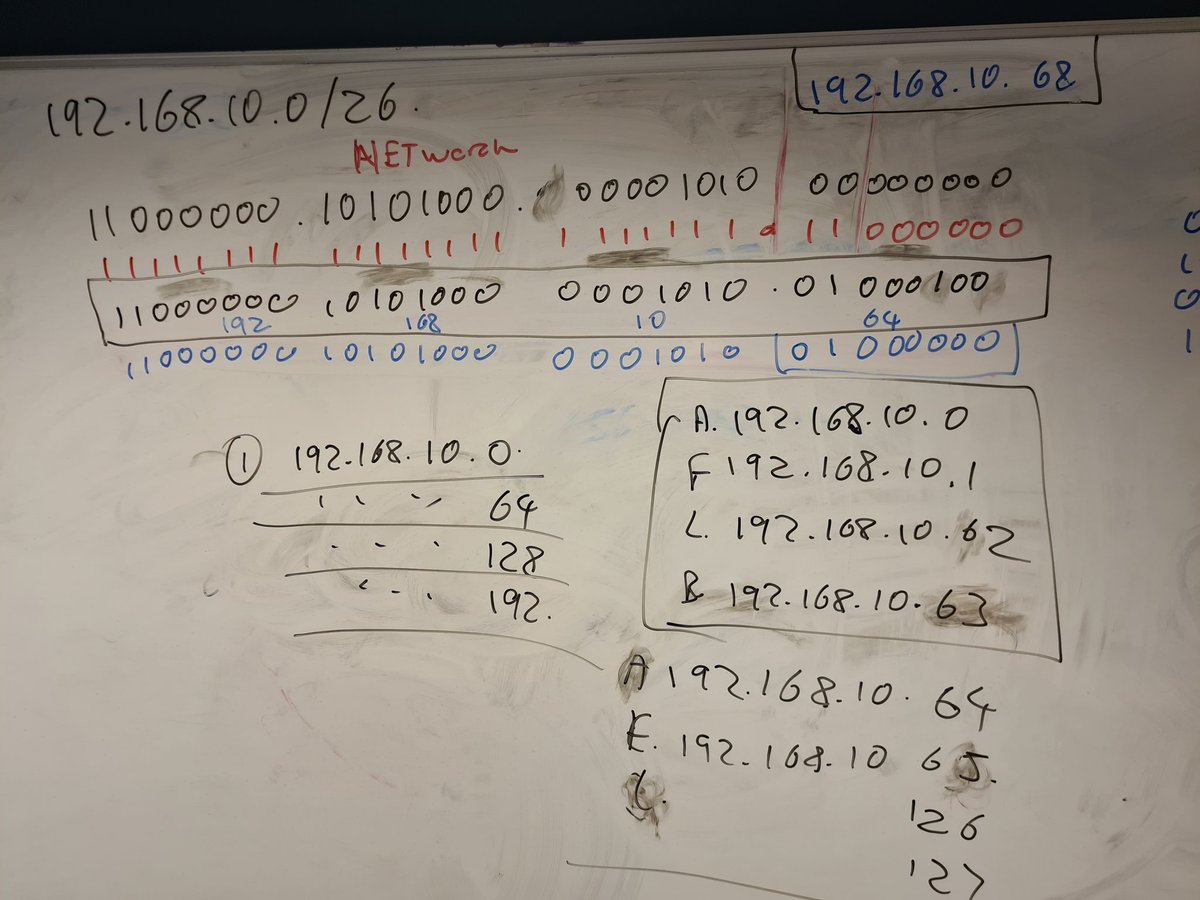 192.168.10.0/26.
192.168.10. 68
NETwork
11000000 . 10101000 . 00001010 00000000
11111111 11111111 1111111 . 11000000
11000000 10101000 0001010 . 01000100
192 168 10 64
11000000 10101000 0001010 01000000
0
1
0
1
1 192.168.10.0.
64
128
192.
A. 192.168.10.0
F 192.168.10.1
L. 192.168.10.62
B 192.168.10.63
A 192.168.10.64
F. 192.168.10 65.
L.
126
127